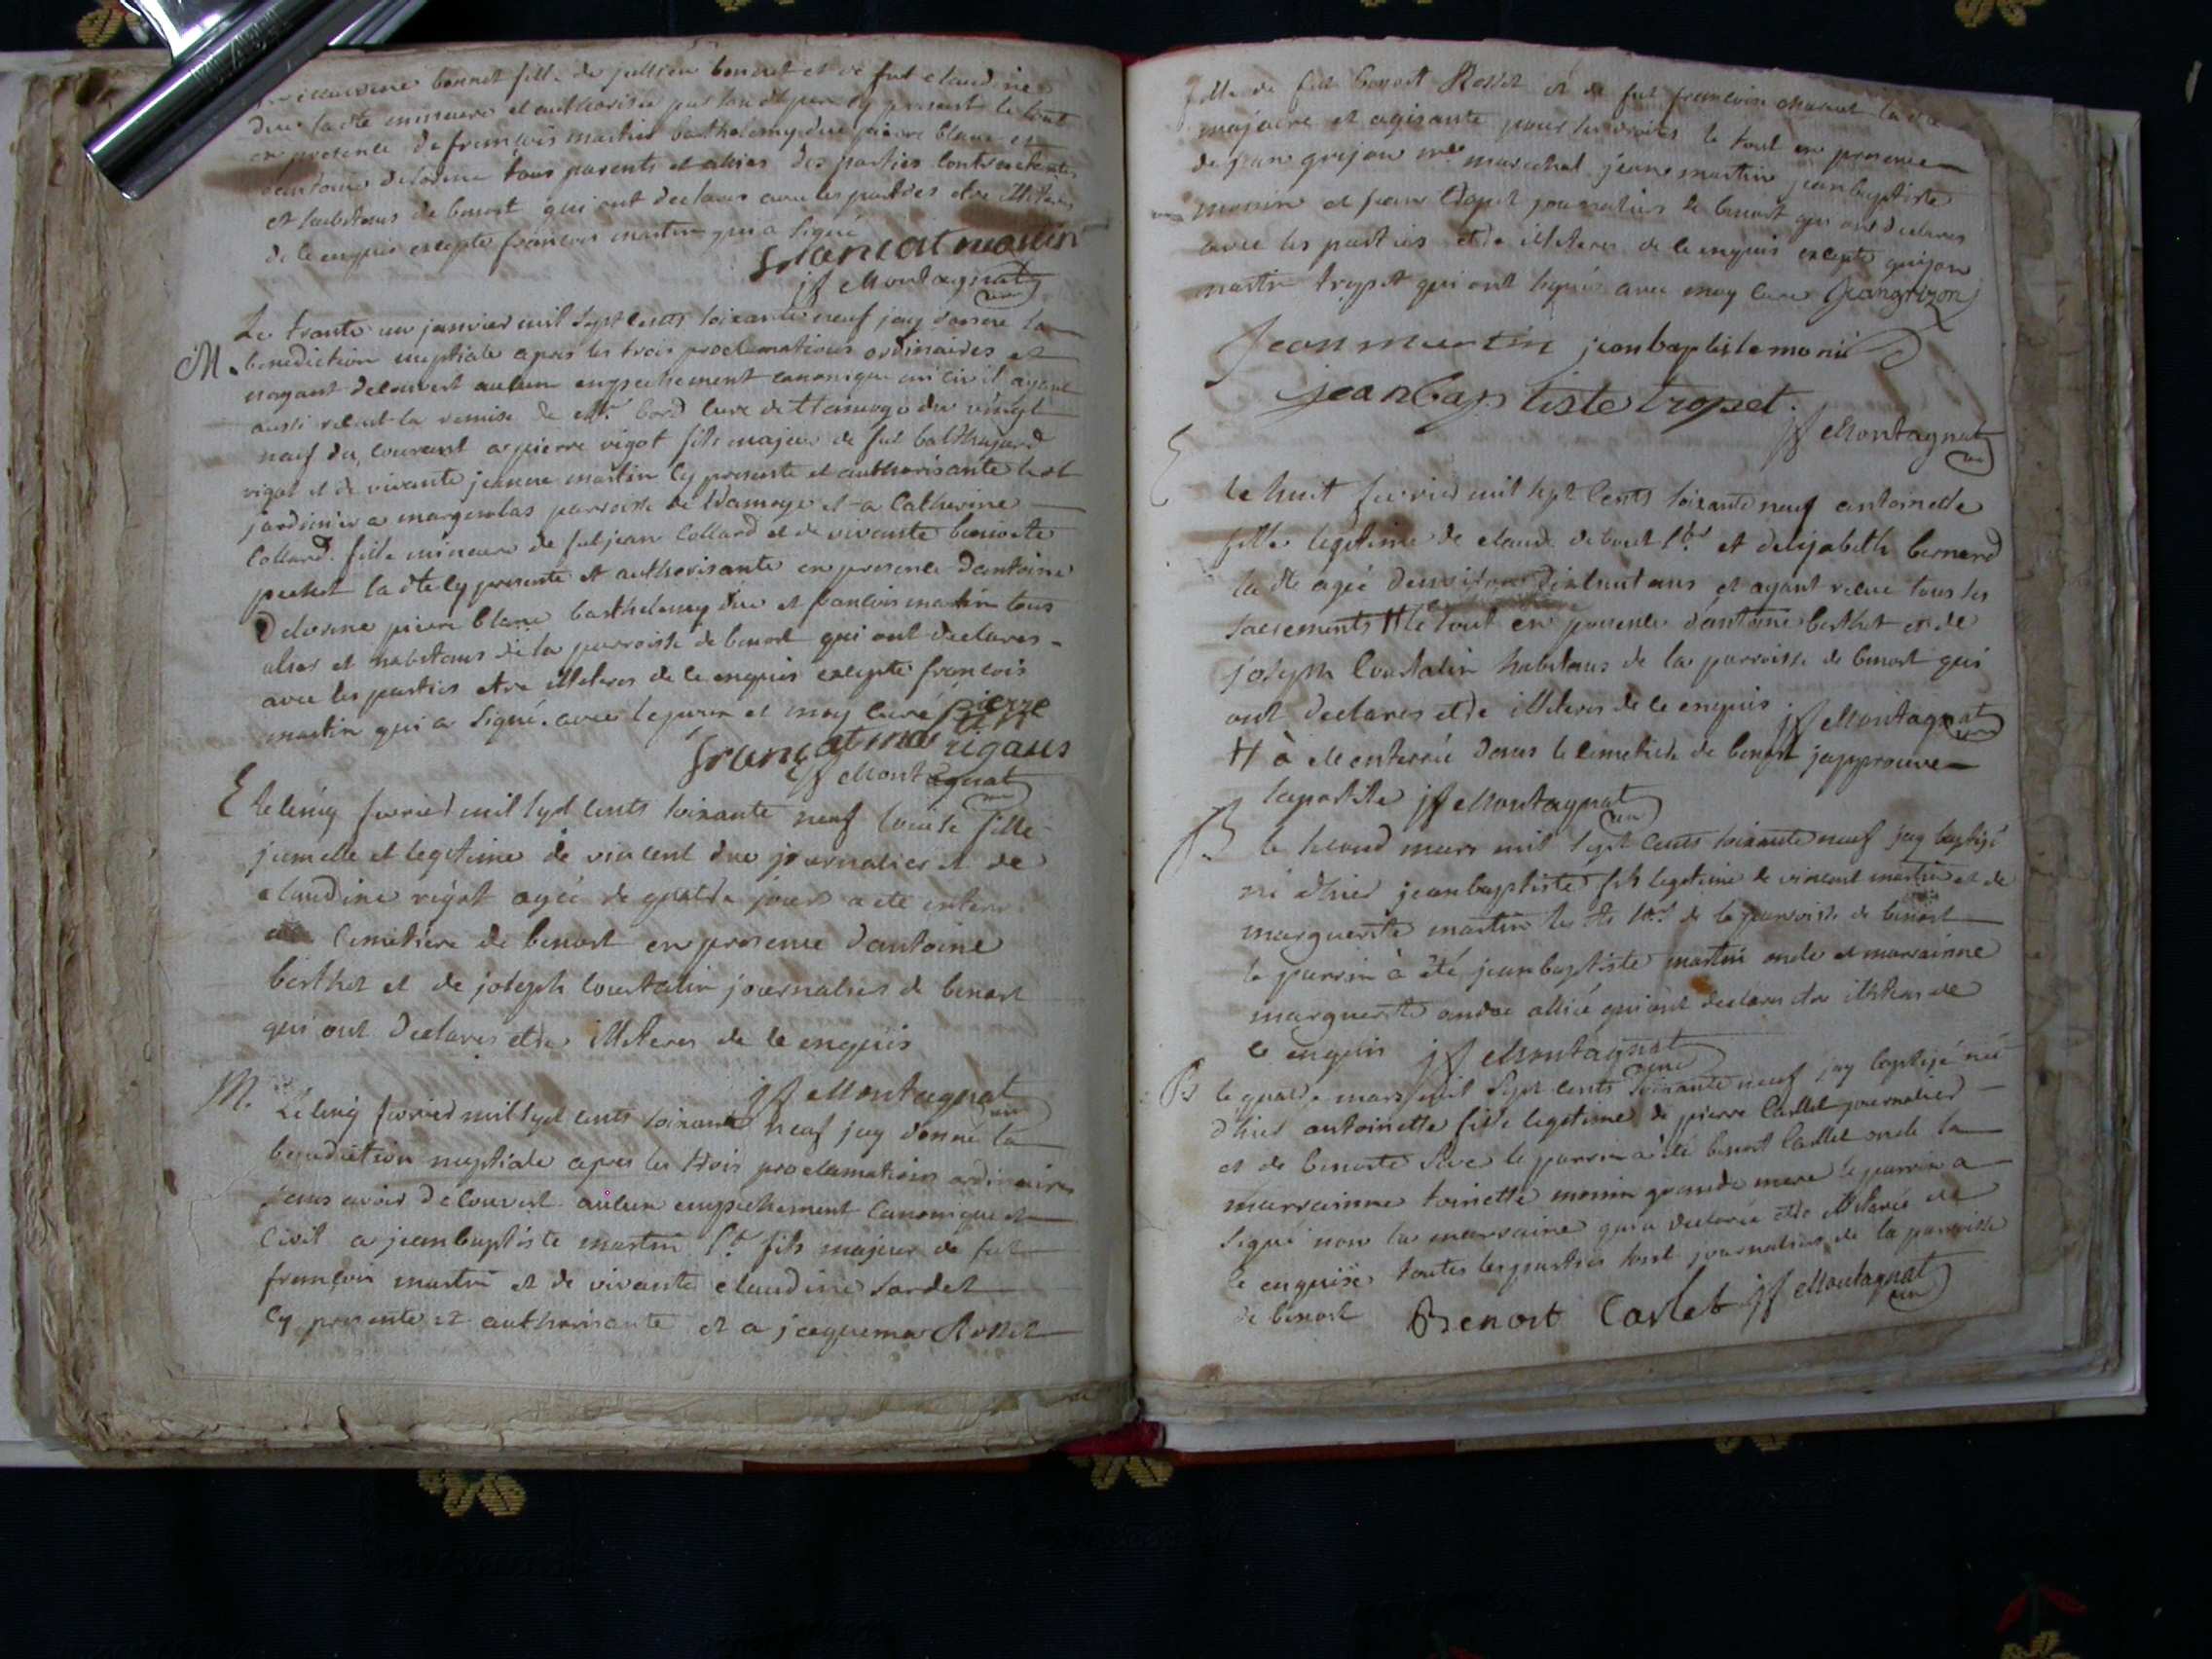 bonnet fille de jullien bonnet et de fut claudine
due la dte mineure et authorisée par son dt pere cy present le tout
en presence de françois martin barthelemy due pierre blanc et
antoine delorme tous parents et alies des parties contractantes
et habitans de benost qui ont declares avec les parties etre illiteres
de ce enquis excepté françois martin qui a signé
francat martin
jf Montagnat
Le trante un janvier mil sept cents soixante neuf jay donne la
M. benediction nuptiale apres les trois proclamations ordinaires et
nayant decouvert aucun empechement canonique ni civil ayant
aussi recut la remise de mr. bord cure de du vingt
neuf du courant a pierre rigot fils majeur de fut balthazard
rigot et de vivante jeanne martin cy presente et authorisante le dt
jardinier a margnolas parroisse de tramoye et a Catherine
Collard fille mineure de fut jean Collard et de vivante benoite
pechet la dte cy presente et authorisante en presence dantoine
Delorme pierre blanc barthelemy due et francois martin tous
alies et habitans de la parroisse de benost qui ont declares
avec les parties etre illiteres de ce enquis excepté francois
martin qui a signé avec lepoux et moy curé pierre
francat mar rigaus
jf Montagnat
E le cinq fevrier mil sept cents soixante neuf louise fille
jumelle et legitime de vincent due journalier et de
claudine rigot agée de quatre jours a ete enterr
cimetiere de benost en presence dantoine
berthet et de joseph coustalin journaliers de benost
qui ont declares etre illiteres de ce enquis
jf Montagnat
M. Le cinq fevrier mil sept cents soixante neuf jay donné la
benediction nuptiale apres les trois proclamations ordinaires
sans avoir decouvert aucun empechement canonique et
civil a jean baptiste martin fils majeur de fut
françois martin et de vivante claudine sardet
cy presente et authorisante et a jaquema Rosset
fille de fut benoit Rosset et de fut francoise la dte
majeure et agisante pour ses droits le tout en presence
de jean grijon me. marechal jean martin jean baptiste
monin et jean tropet journaliers de benost qui ont declares
avec les parties etre illiteres de ce enquis excepté grijon
martin tropet qui ont signé avec moy cure Jeangrizon
Jean martin jean baptiste monin
jean baptiste tropet.
jf Montagnat
E le huit fevrier mil sept cents soixante neuf antoinette
fille legitime de claude debout et delizabeth bernard
la dte agée denviron dixhuit ans et ayant recue tous les
sacrements H le tout en presence dantoine berthet et de
joseph Coustalin habitans de la parroisse de benost qui
ont declares etre illiteres de ce enquis jf Montagnat
H à ete enterrée dans le cimetiere de benost japprouve
lapostile jf Montagnat
B le second mars mil sept cents soixante neuf jay baptisé
né dhier jean baptiste fils legitime de vincent martin et de
marguerite martin les dts de la parroisse de benost
le parrin à été jean baptiste martin oncle et marrainne
marguerite andré alliée qui ont declares etre illiteres de
ce enquis jf Montagnat
B le quatre mars mil sept cents soixante neuf jay baptisé née
dhier antoinette fille legitime de pierre Carllet journalier
et de benoite Sève le parrin à été benoit Carllet oncle la
marrainne toinette monin grande mere le parrin a
signé non la marraine qui a declarée etre illiterée de
ce enquise toutes les parties sont journaliers de la parroisse
de benost Benoit Carlet jf Montagnat